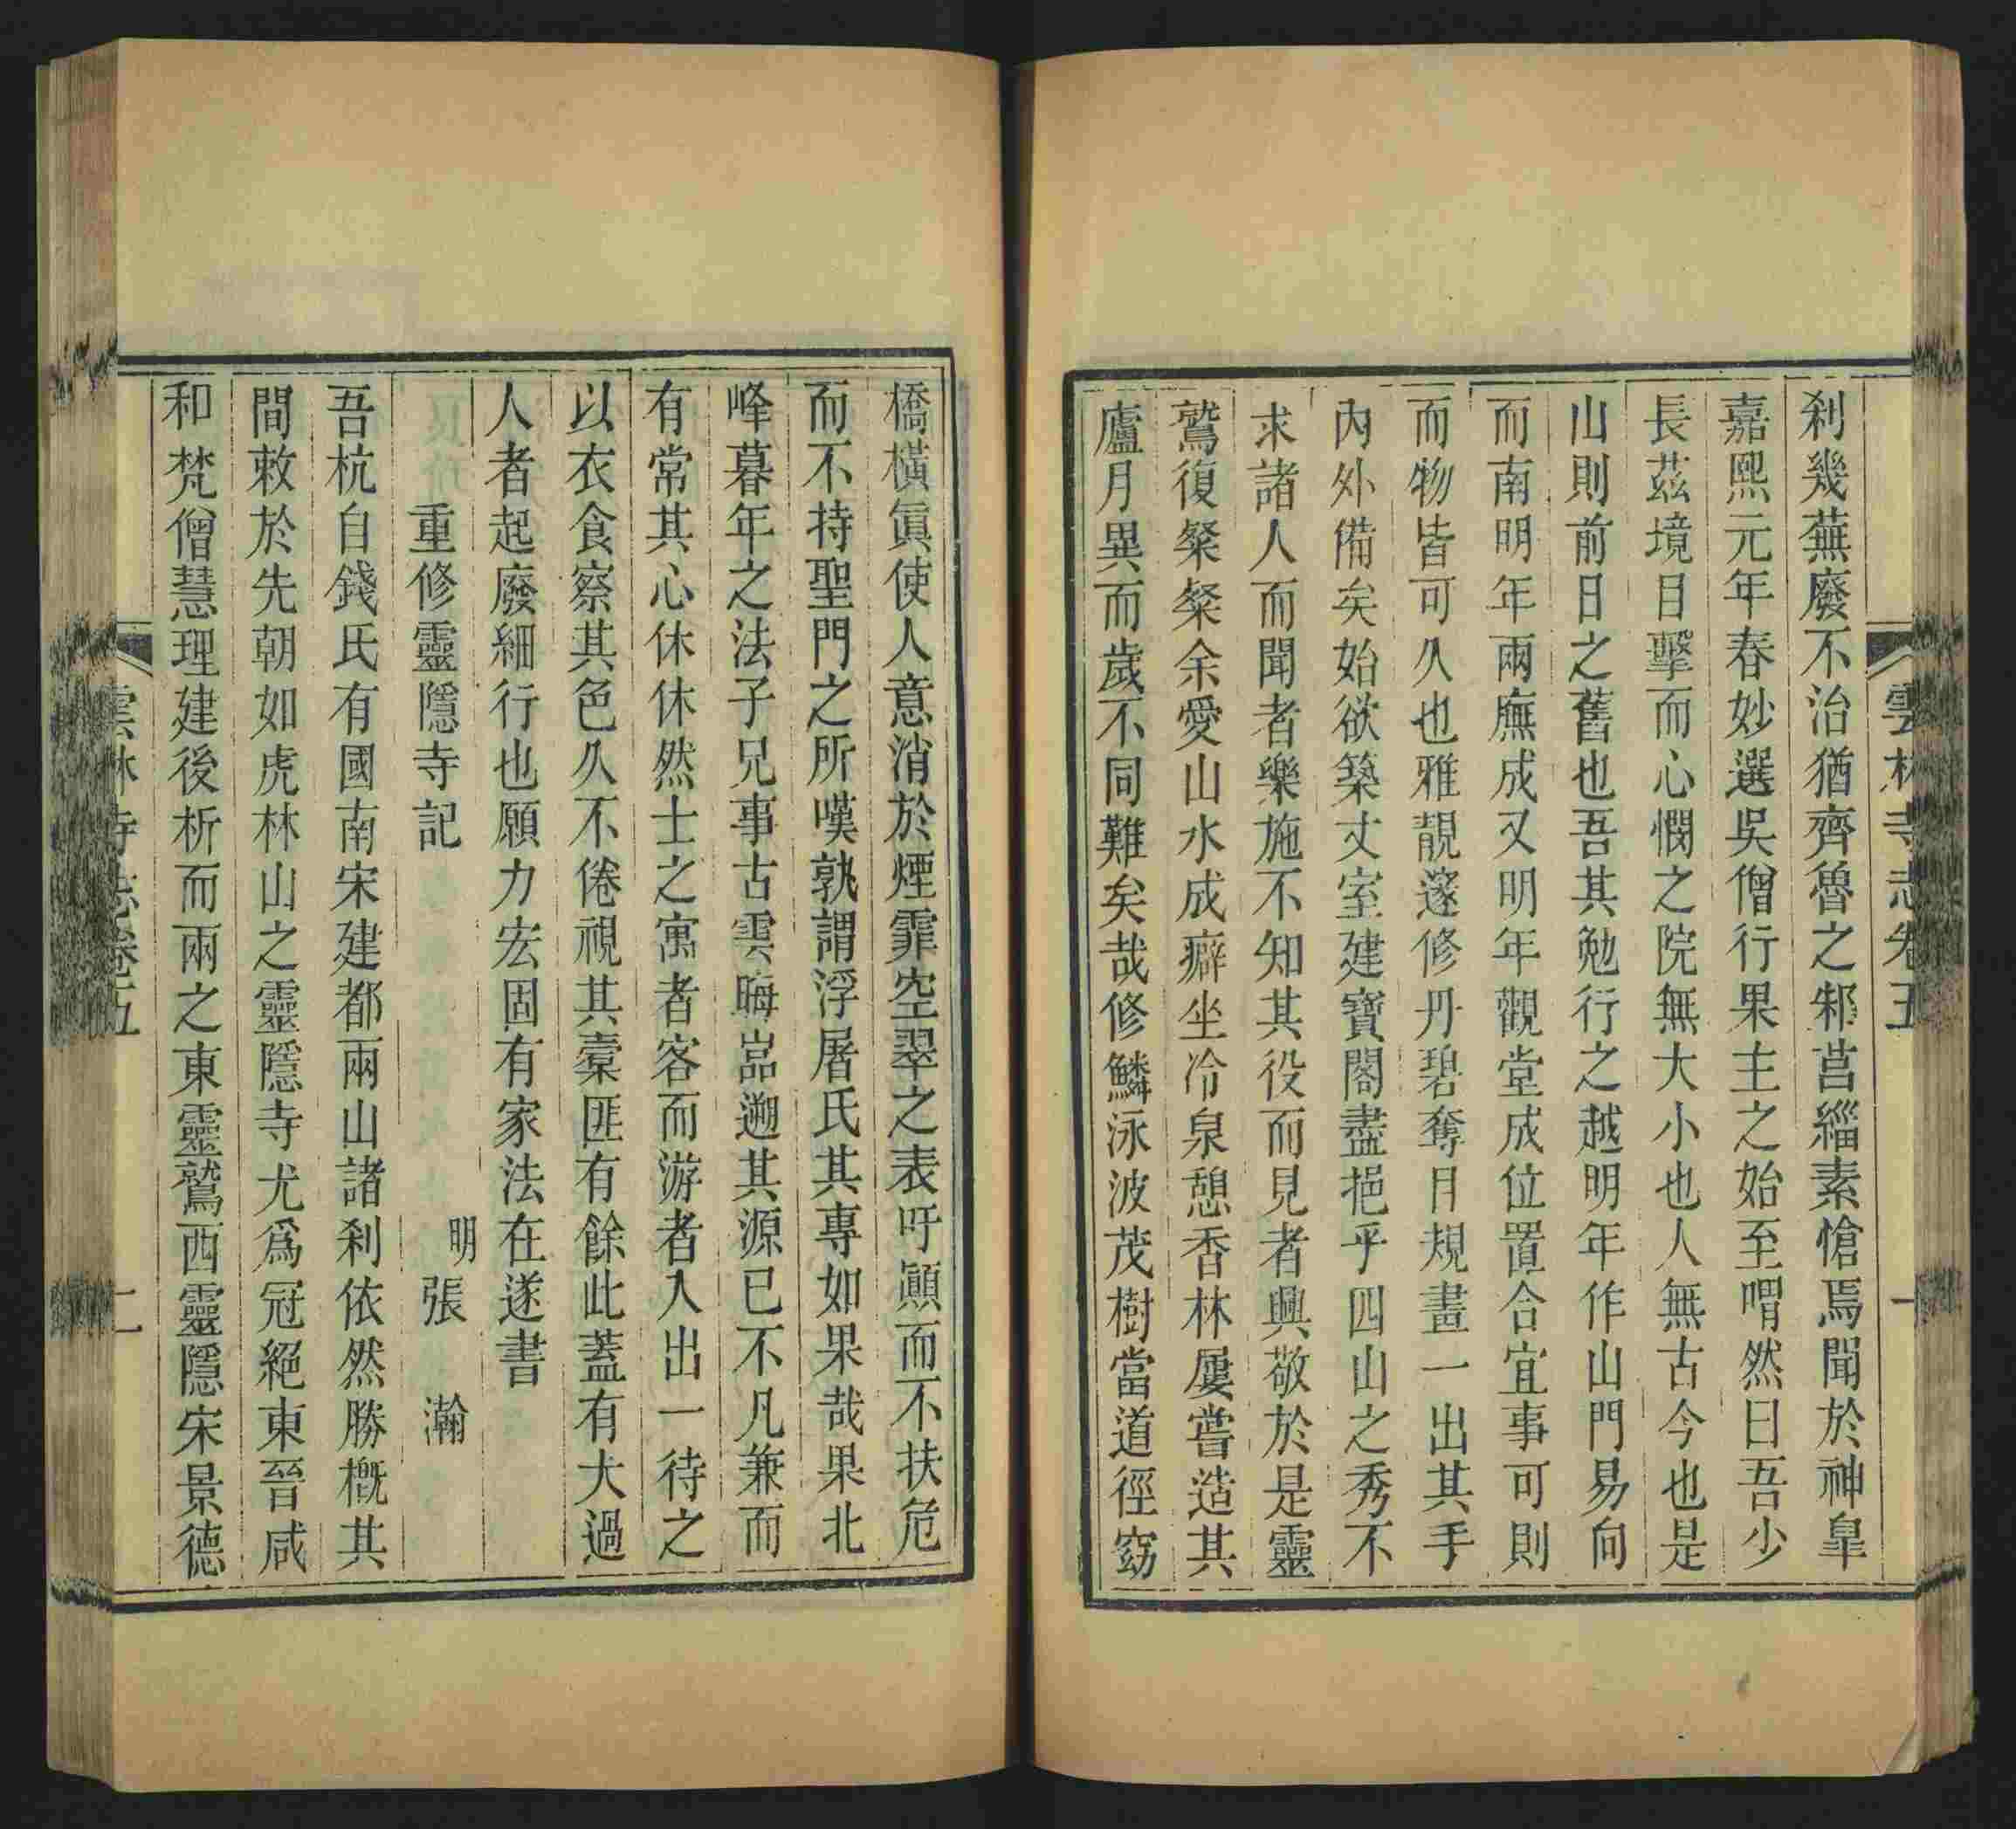 刹幾蕪廢不治猶齊魯之邾莒緇素愴焉聞於神臯
嘉熙元年春妙選吳僧行果主之始至喟然曰吾少
長茲境目擊而心憫之院無大小也人無古今也是
山則前日之舊也吾其勉行之越明年作山門易向
而南明年兩廡成又明年觀堂成位置合宜事可則
而物皆可久也雅靚邃修丹碧奪目規畫一出其手
內外備矣始欲築丈室建寶閣盡挹乎四山之秀不
求諸人而聞者樂施不知其役而見者興敬於是靈
鷲復粲粲余愛山水成癖坐冷泉憩香林屢嘗造其
廬月異而歲不同難矣哉修鱗泳波茂樹當道徑窈
橋橫眞使人意消於煙霏空翠之表吁顚而不扶危
而不持聖門之所嘆孰謂浮屠氏其專如果哉果北
峰暮年之法子兄事古雲晦嵓遡其源已不凡兼而
有常其心休休然士之寓者客而游者入出一待之
以衣食察其色久不倦視其橐匪有餘此蓋有大過
人者起廢細行也願力宏固有家法在遂書
重修靈隱寺記
明張瀚
吾杭自錢氏有國南宋建都兩山諸刹依然勝槪其
間敕於先朝如虎林山之靈隱寺尤爲冠絕東晉咸
和梵僧慧理建後析而兩之東靈鷲西靈隱宋景德
雲林寺志卷五
二